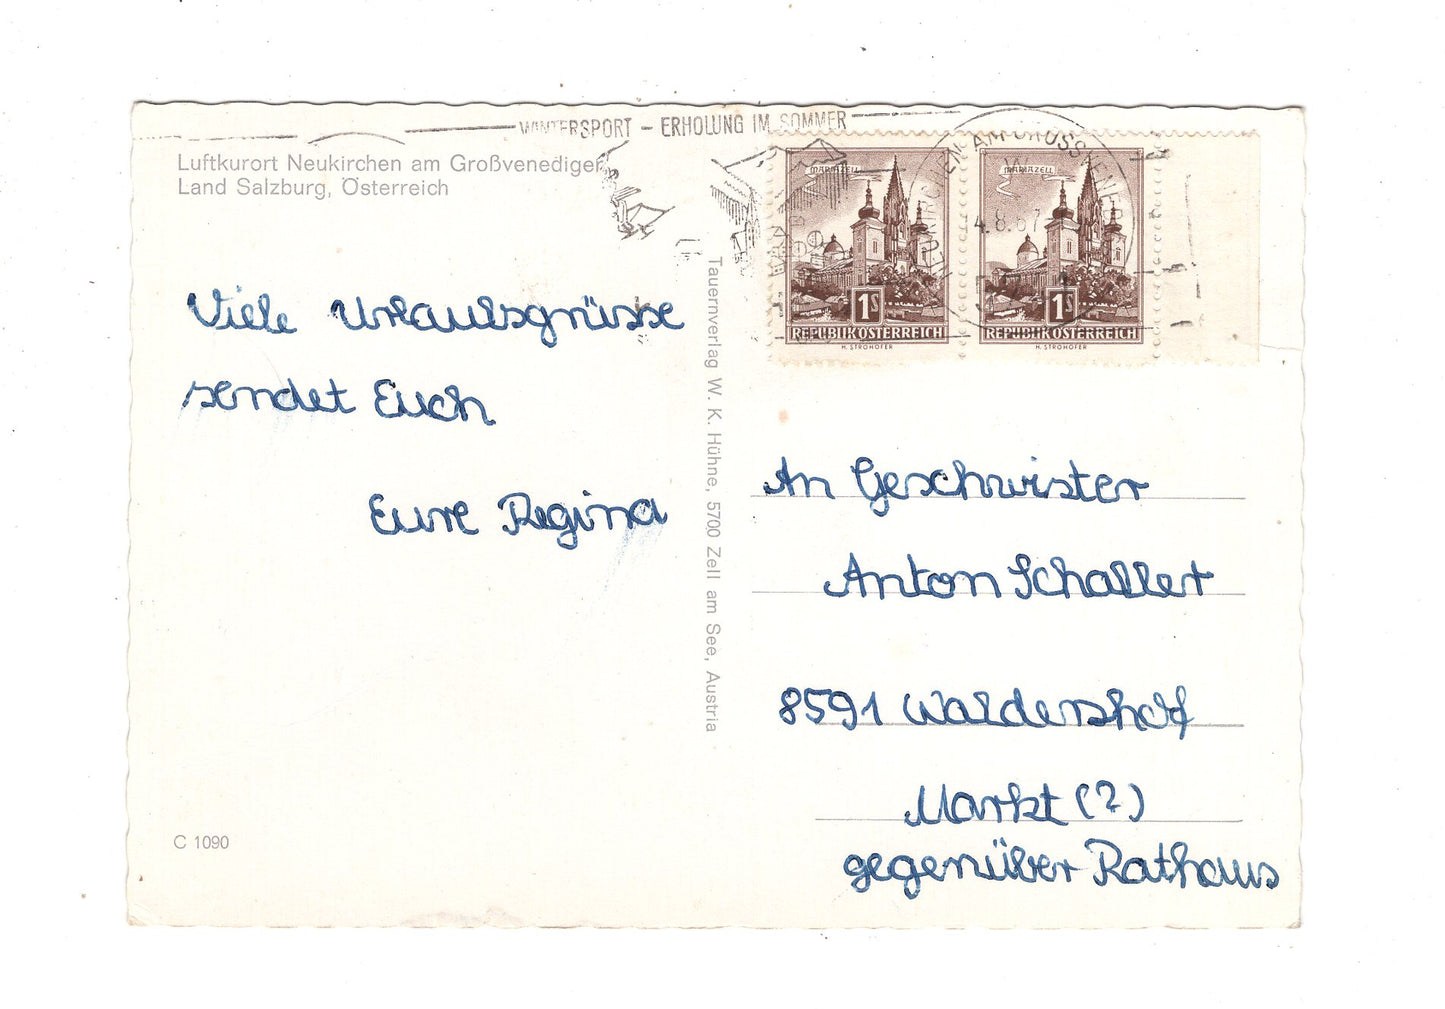 WINTERSPORT – ERHOLUNG IM SOMMER
Luftkurort Neukirchen am Großvenediger
Land Salzburg, Österreich
MARIAZELL
MARIAZELL
4.8.67
1S
1S
REPUBLIK ÖSTERREICH
REPUBLIK ÖSTERREICH
H. STROHOFER
H. STROHOFER
Viele Urlaubsgrüsse
sendet Euch
Eure Regina
Tauernverlag W. K. Hühne, 5700 Zell am See, Austria
An Geschwister
Anton Schallert
8591 Waldershof
Markt (?)
gegenüber Rathaus
C 1090